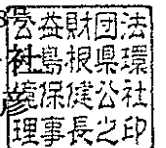 号
社
彦
公益財団法
島根県環
境保健公社
理事長之印